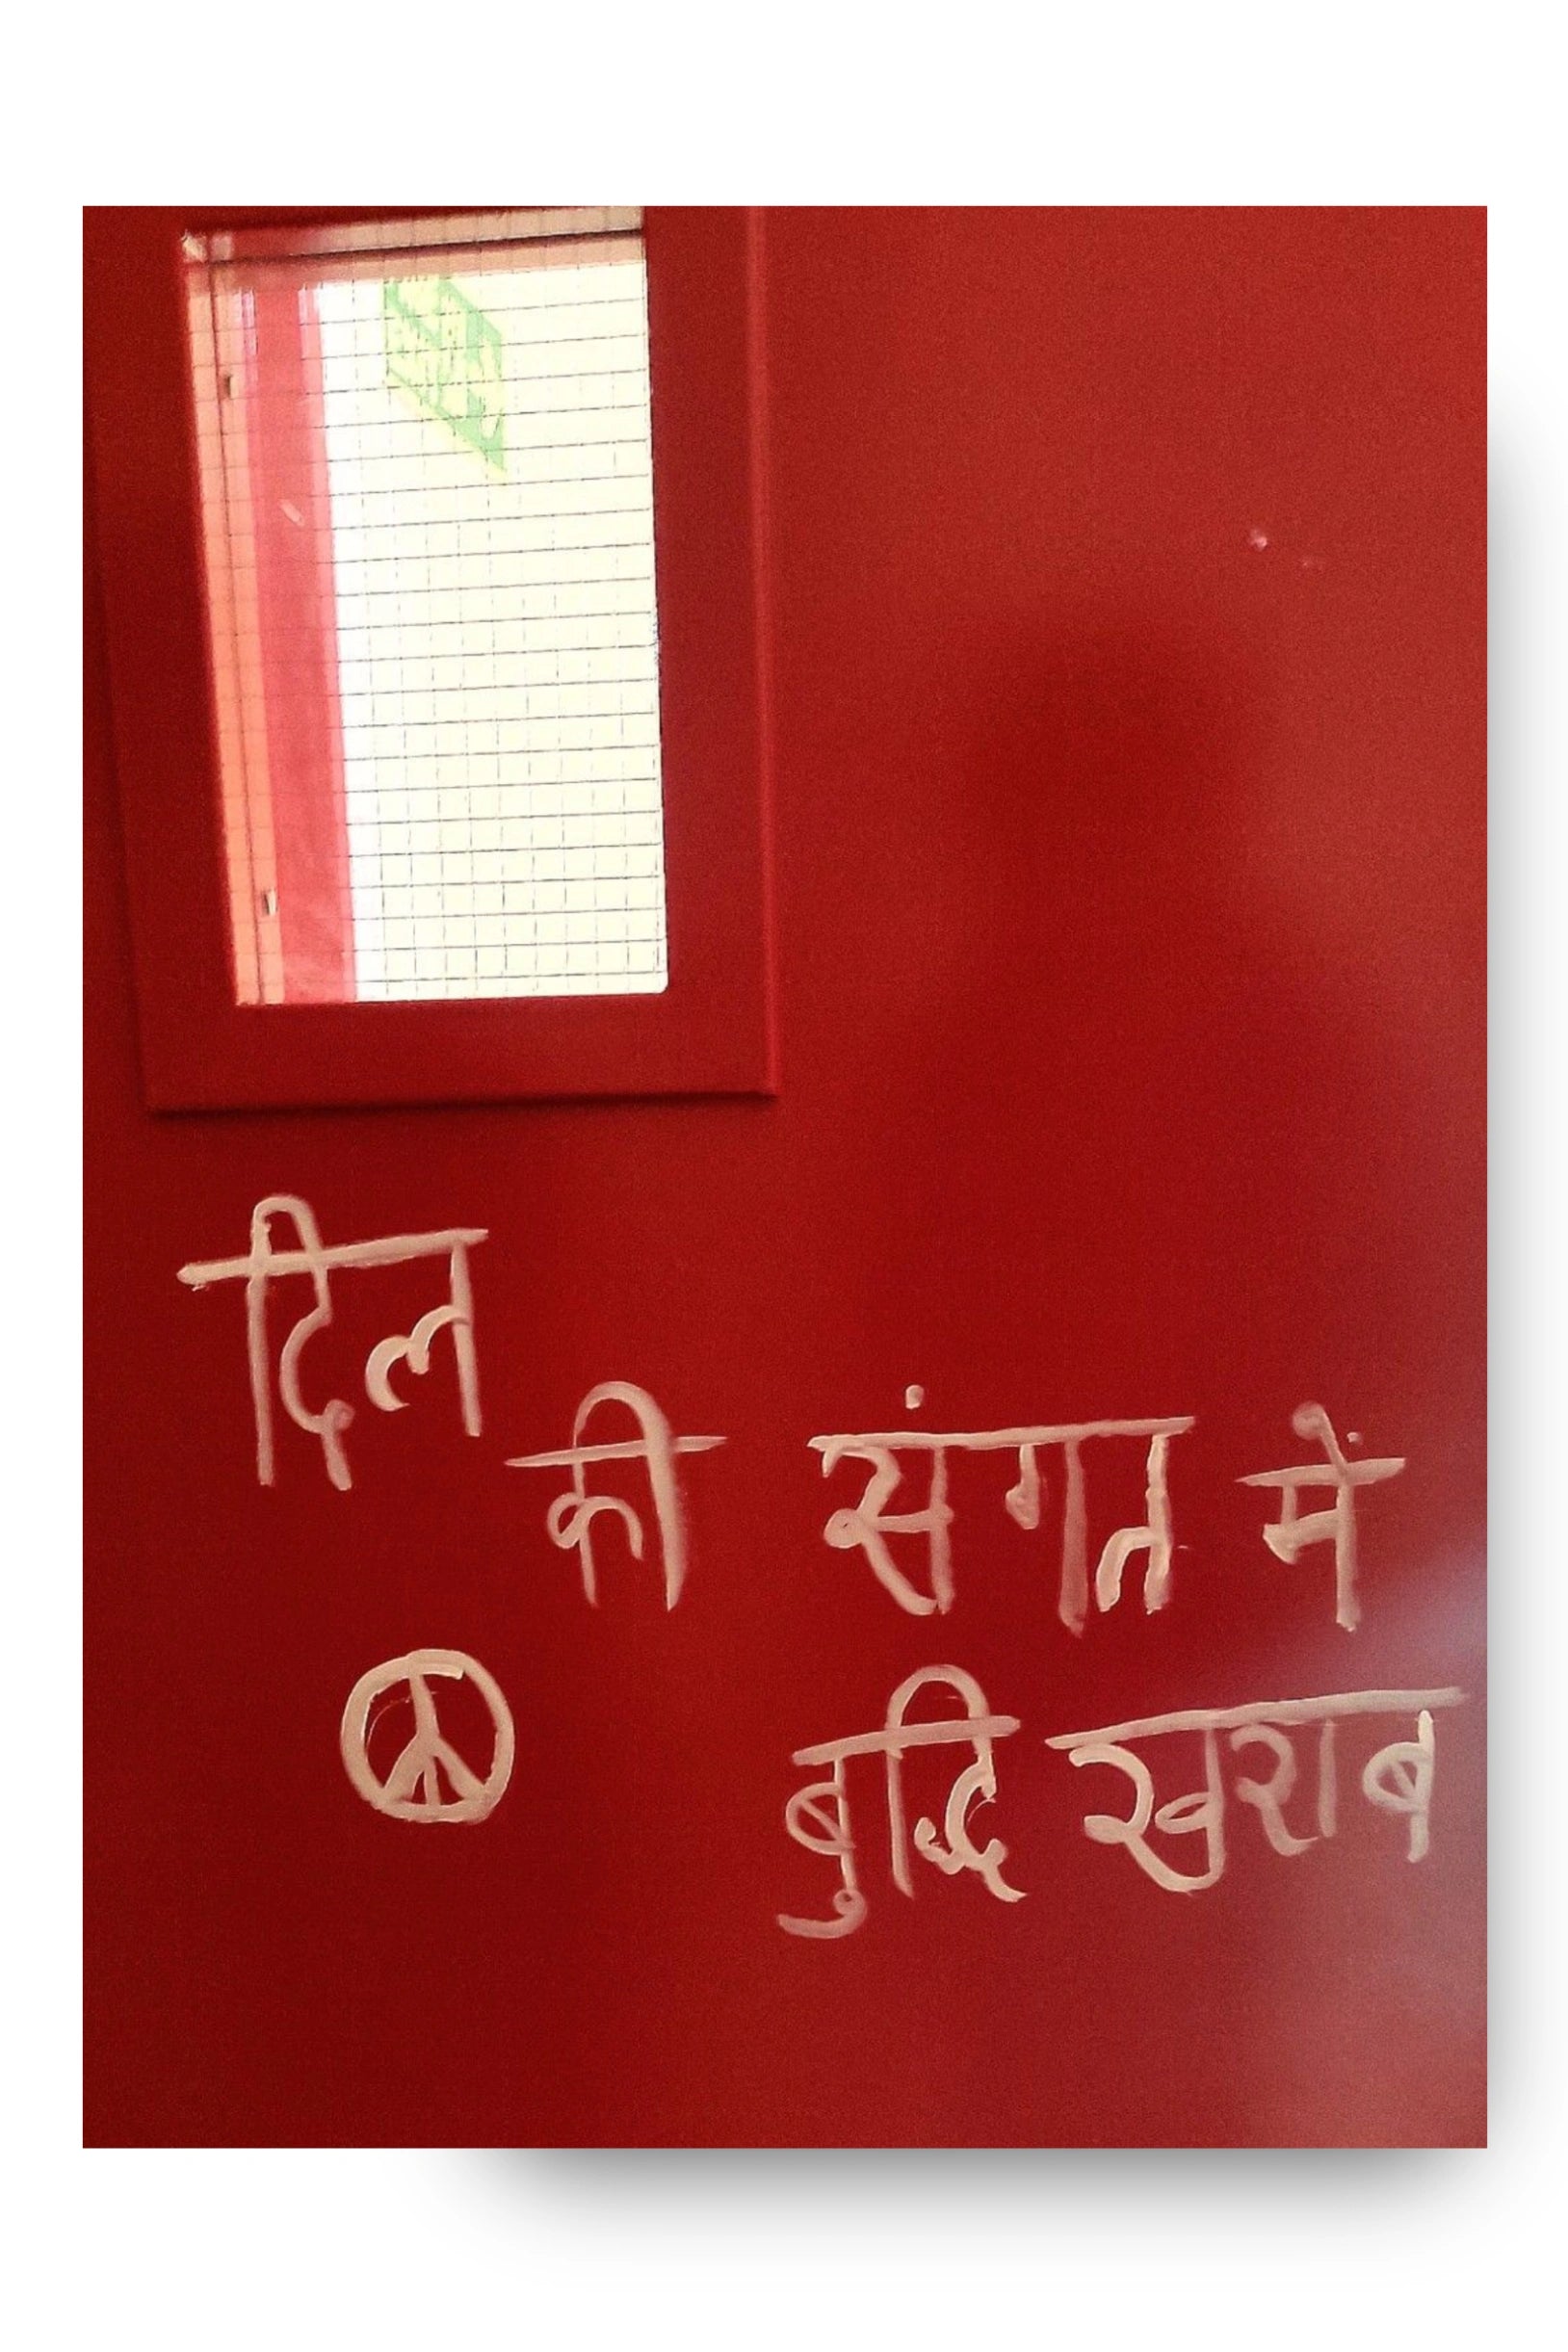 दिल
की संगत में
बुद्धि खराब